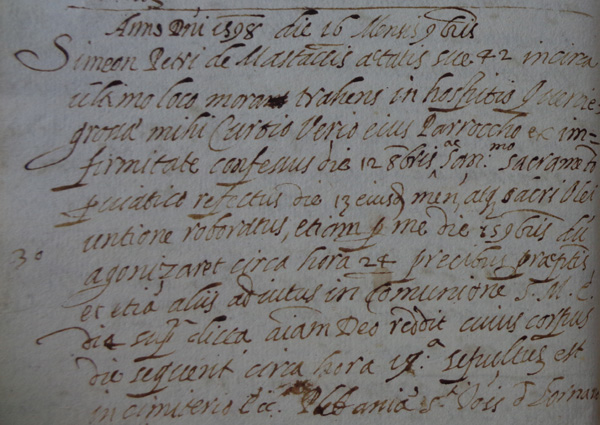 Anno Dni 1598 die 16 Mensis 9bris
Simeon Petri de Mastaccis ætatis suæ 42 in circa
ultimo loco moram trahens in hospitio
mihi Curtio Verio eius Parrocho ex in=
firmitate confessus die 12 8bris, san.mo sacramto
p viatico refectus die 13 eiusd men, atq sacri Olei
untione roboratus, etiam p me die 15 9bris dū
30 agonizaret circa hora 24 precibus præptis
et etiā alijs adiutus in Comunione S. M. E.
die supr dicta aiam Deo reddit cuius corpus
die sequenti circa hora 19.a sepultus est
in cimiterio Plebaniæ